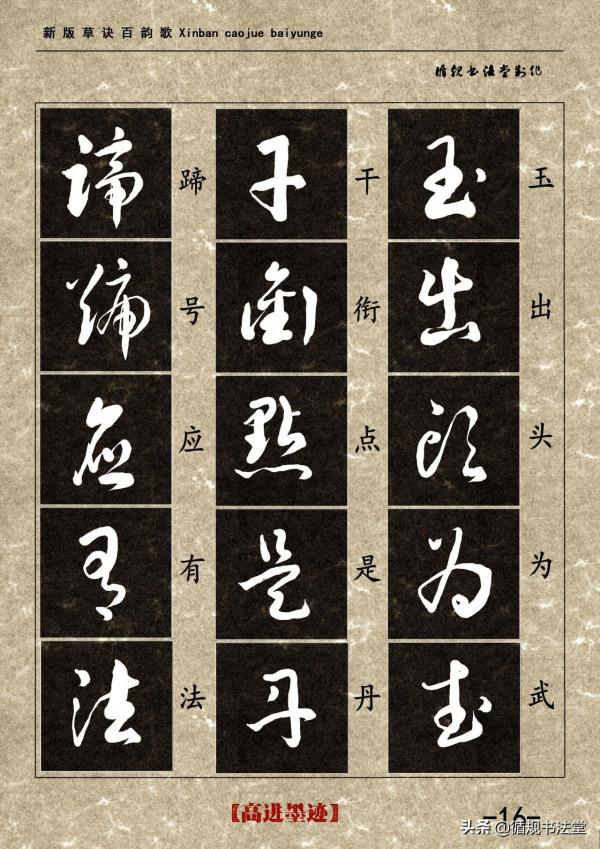 新版草诀百韵歌 Xinban caojue baiyunge
循规书法堂制作
玉出头为武
干衔点是丹
蹄号应有法
玉出头为武
干衔点是丹
蹄号应有法
【高进墨迹】
-16-
头条 @循规书法堂